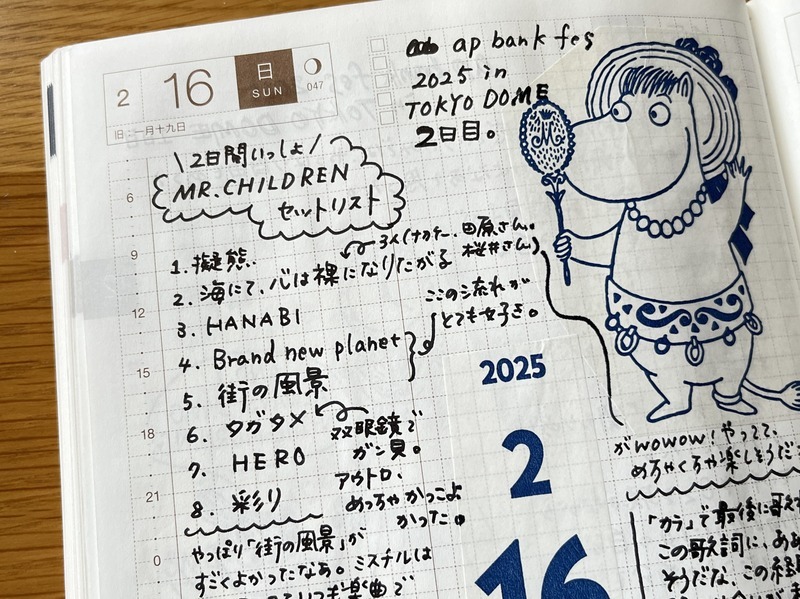 2
16
日
SUN
047
旧:一月十九日
ap bank fes
2025 in
TOKYO DOME
2日目。
\ 2日間いっしょ /
MR.CHILDREN
セットリスト
6
9
12
15
18
21
0
1. 擬態
2. 海にて、心は裸になりたがる
3人(ナカケー、田原さん。
桜井さん)
3. HANABI
4. Brand new planet
5. 街の風景
ここの流れが
とても好き。
6. タガタメ
7. HERO
8. 彩り
双眼鏡で
ガン見。
アウトロ、
めっちゃかっこよ
かった。
やっぱり「街の風景」が
すごくよかったなあ。ミスチルは
いつも楽曲で
2025
2
16
がwowow!やってて、
めちゃくちゃ楽しそうだ
「カラ」で最後に歌え
この歌詞に、ああ
そうだな、この経